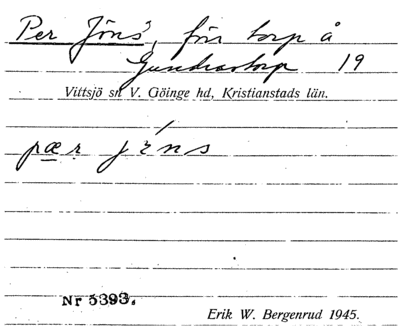 Per Jöns, förr torp å
Gundrastorp 19
Vittsjö sn V. Göinge hd, Kristianstads län.
pær jɤ́ns
Nr 5393.
Erik W. Bergenrud 1945.